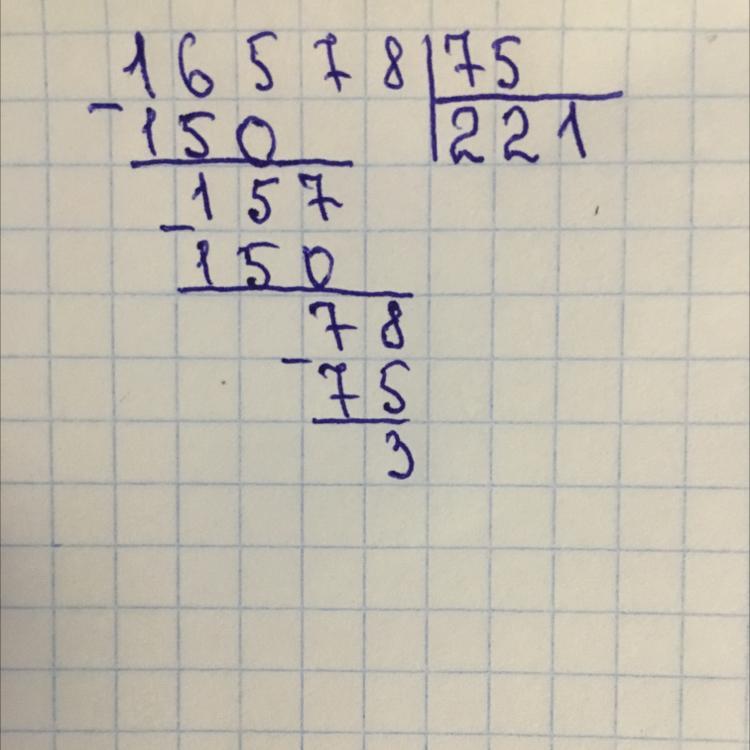 16578 75
- 150 221
157
- 150
78
- 75
3